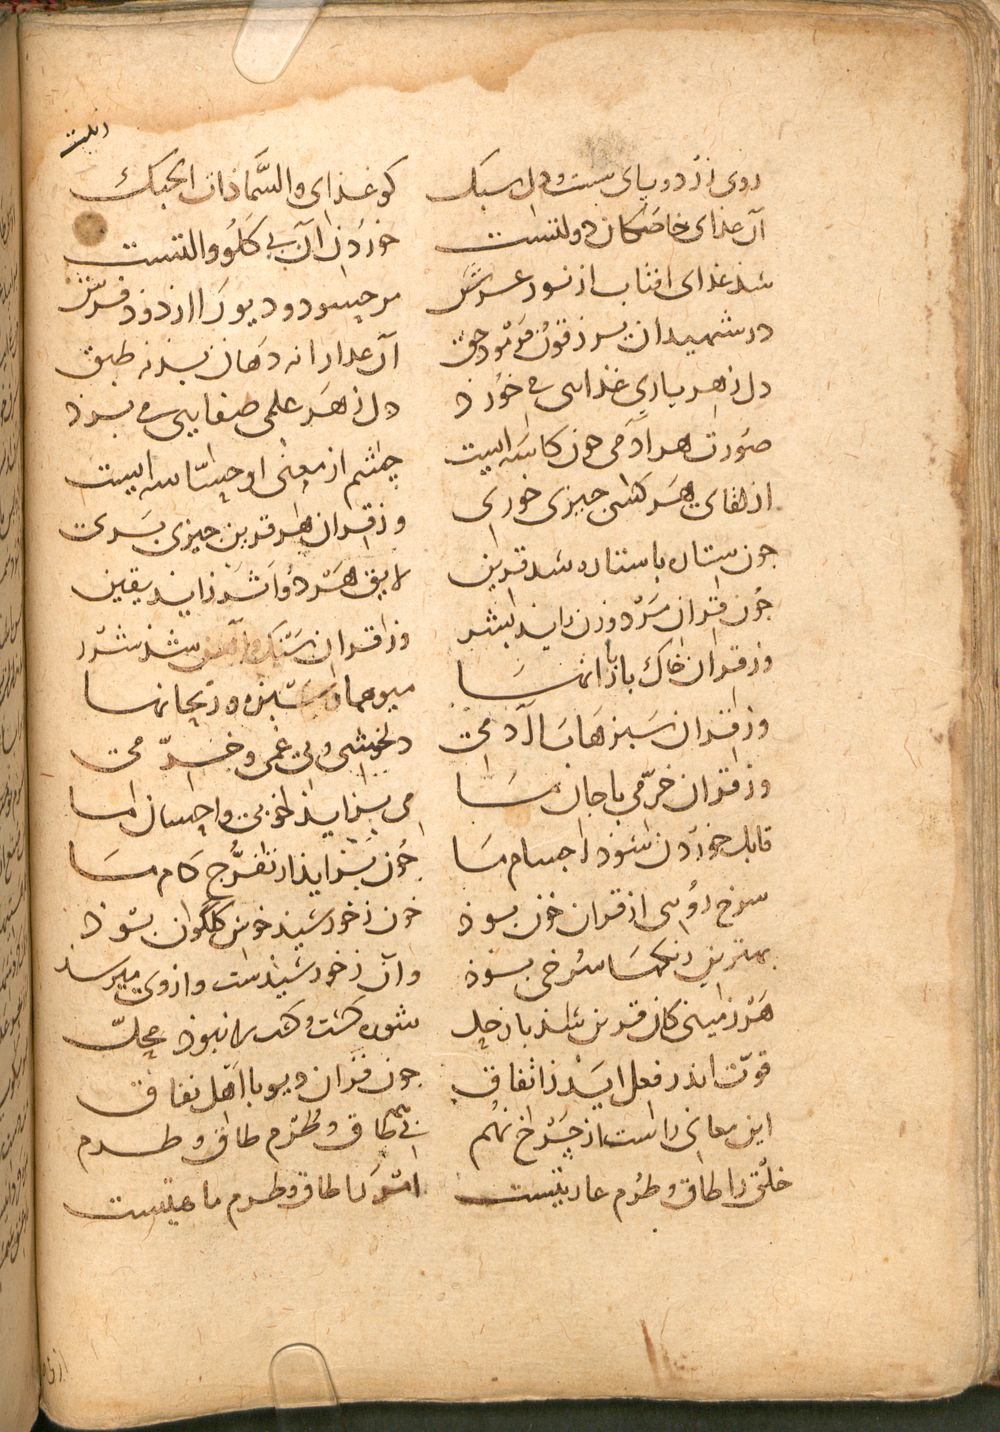 روی زرد و پای سست و دل سبک کو غذای والسما ذات الحبک
آن غذای خاصگان دولتست خوردن آن بی گلو و التست
شد غذای افتاب از نور عرش مر حسود و دیو را از دود فرش
در شهیدان یرزقون فرمود حق آن غدا را نه دهان بذ نه طبق
دل ز هر یاری غذایی می خورذ دل ز هر علمی صفایی می برذ
صورت هر ادمی جون کاسه ایست چشم از معنی او حساسه ایست
از لقای هر کسی جیزی خوری وز قران هر قرین جیزی بری
جون ستاره باستاره شد قرین لایق هر دو اثر زاید یقین
جون قران مرد و زن زاید بشر وز قران سنک و آهن شذ شرر
وز قران خاک با بارانها میوها و سبزه و ریحانها
وز قران سبزها با آدمی دلخوشی و بی غمی و خرمی
وز قران خرمی با جان ما می بزاید خوبی و احسان ما
قابل خوردن شود اجسام ما جون بزاید از تفرج کام ما
سرخ رویی از قران خون بوذ خون ز خورشید خوش گلگون بوذ
بهترین رنکها سرخی بوذ وآن ز خورشیذست و ازوی میرسذ
هر زمینی کان قرین شد با زحل شوره کشت و کشت را نبوذ محل
قوت اندر فعل آید ز اتفاق جون قران دیو با اهل نفاق
این معانی راست از چرخ نهم بی همه طاق و طرم طاق و طرم
خلق را طاق و طرم عاریتیست امر را طاق و طرم ماهیتست